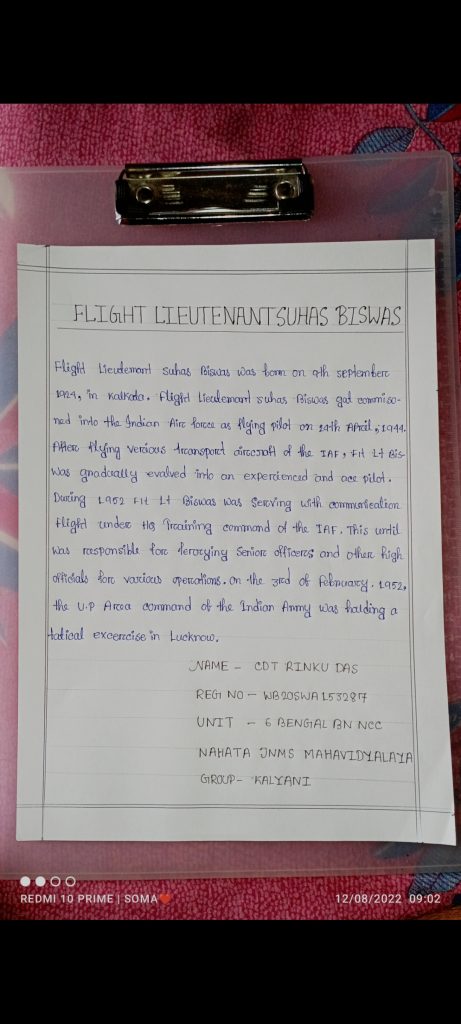 FLIGHT LIEUTENANT SUHAS BISWAS
Flight Lieutemant Suhas Biswas was born on 9th september
1924, in Kalkata. Flight Lieutemant suhas Biswas got commiso-
ned into the Indian Air force as flying pilot on 24th April, 1944.
After flying verious transport aircraft of the IAF, Flt Lt Bis-
was gradually evalved into an experienced and ace pilot.
During 1952 Flt Lt Biswas was serving with communication
flight under HQ Training command of the IAF. This until
was responsible for ferrying senior officers and other high
officials for various operations. on the 3rd of February. 1952,
the U.P Area command of the Indian Army was halding a
tatical excercise in Lucknow.
NAME - CDT RINKU DAS
REG NO - WB20SWA153287
UNIT - 6 BENGAL BN NCC
NAHATA JNMS MAHAVIDYALAYA
GROUP- KALYANI
REDMI 10 PRIME | SOMA❤️
12/08/2022 09:02